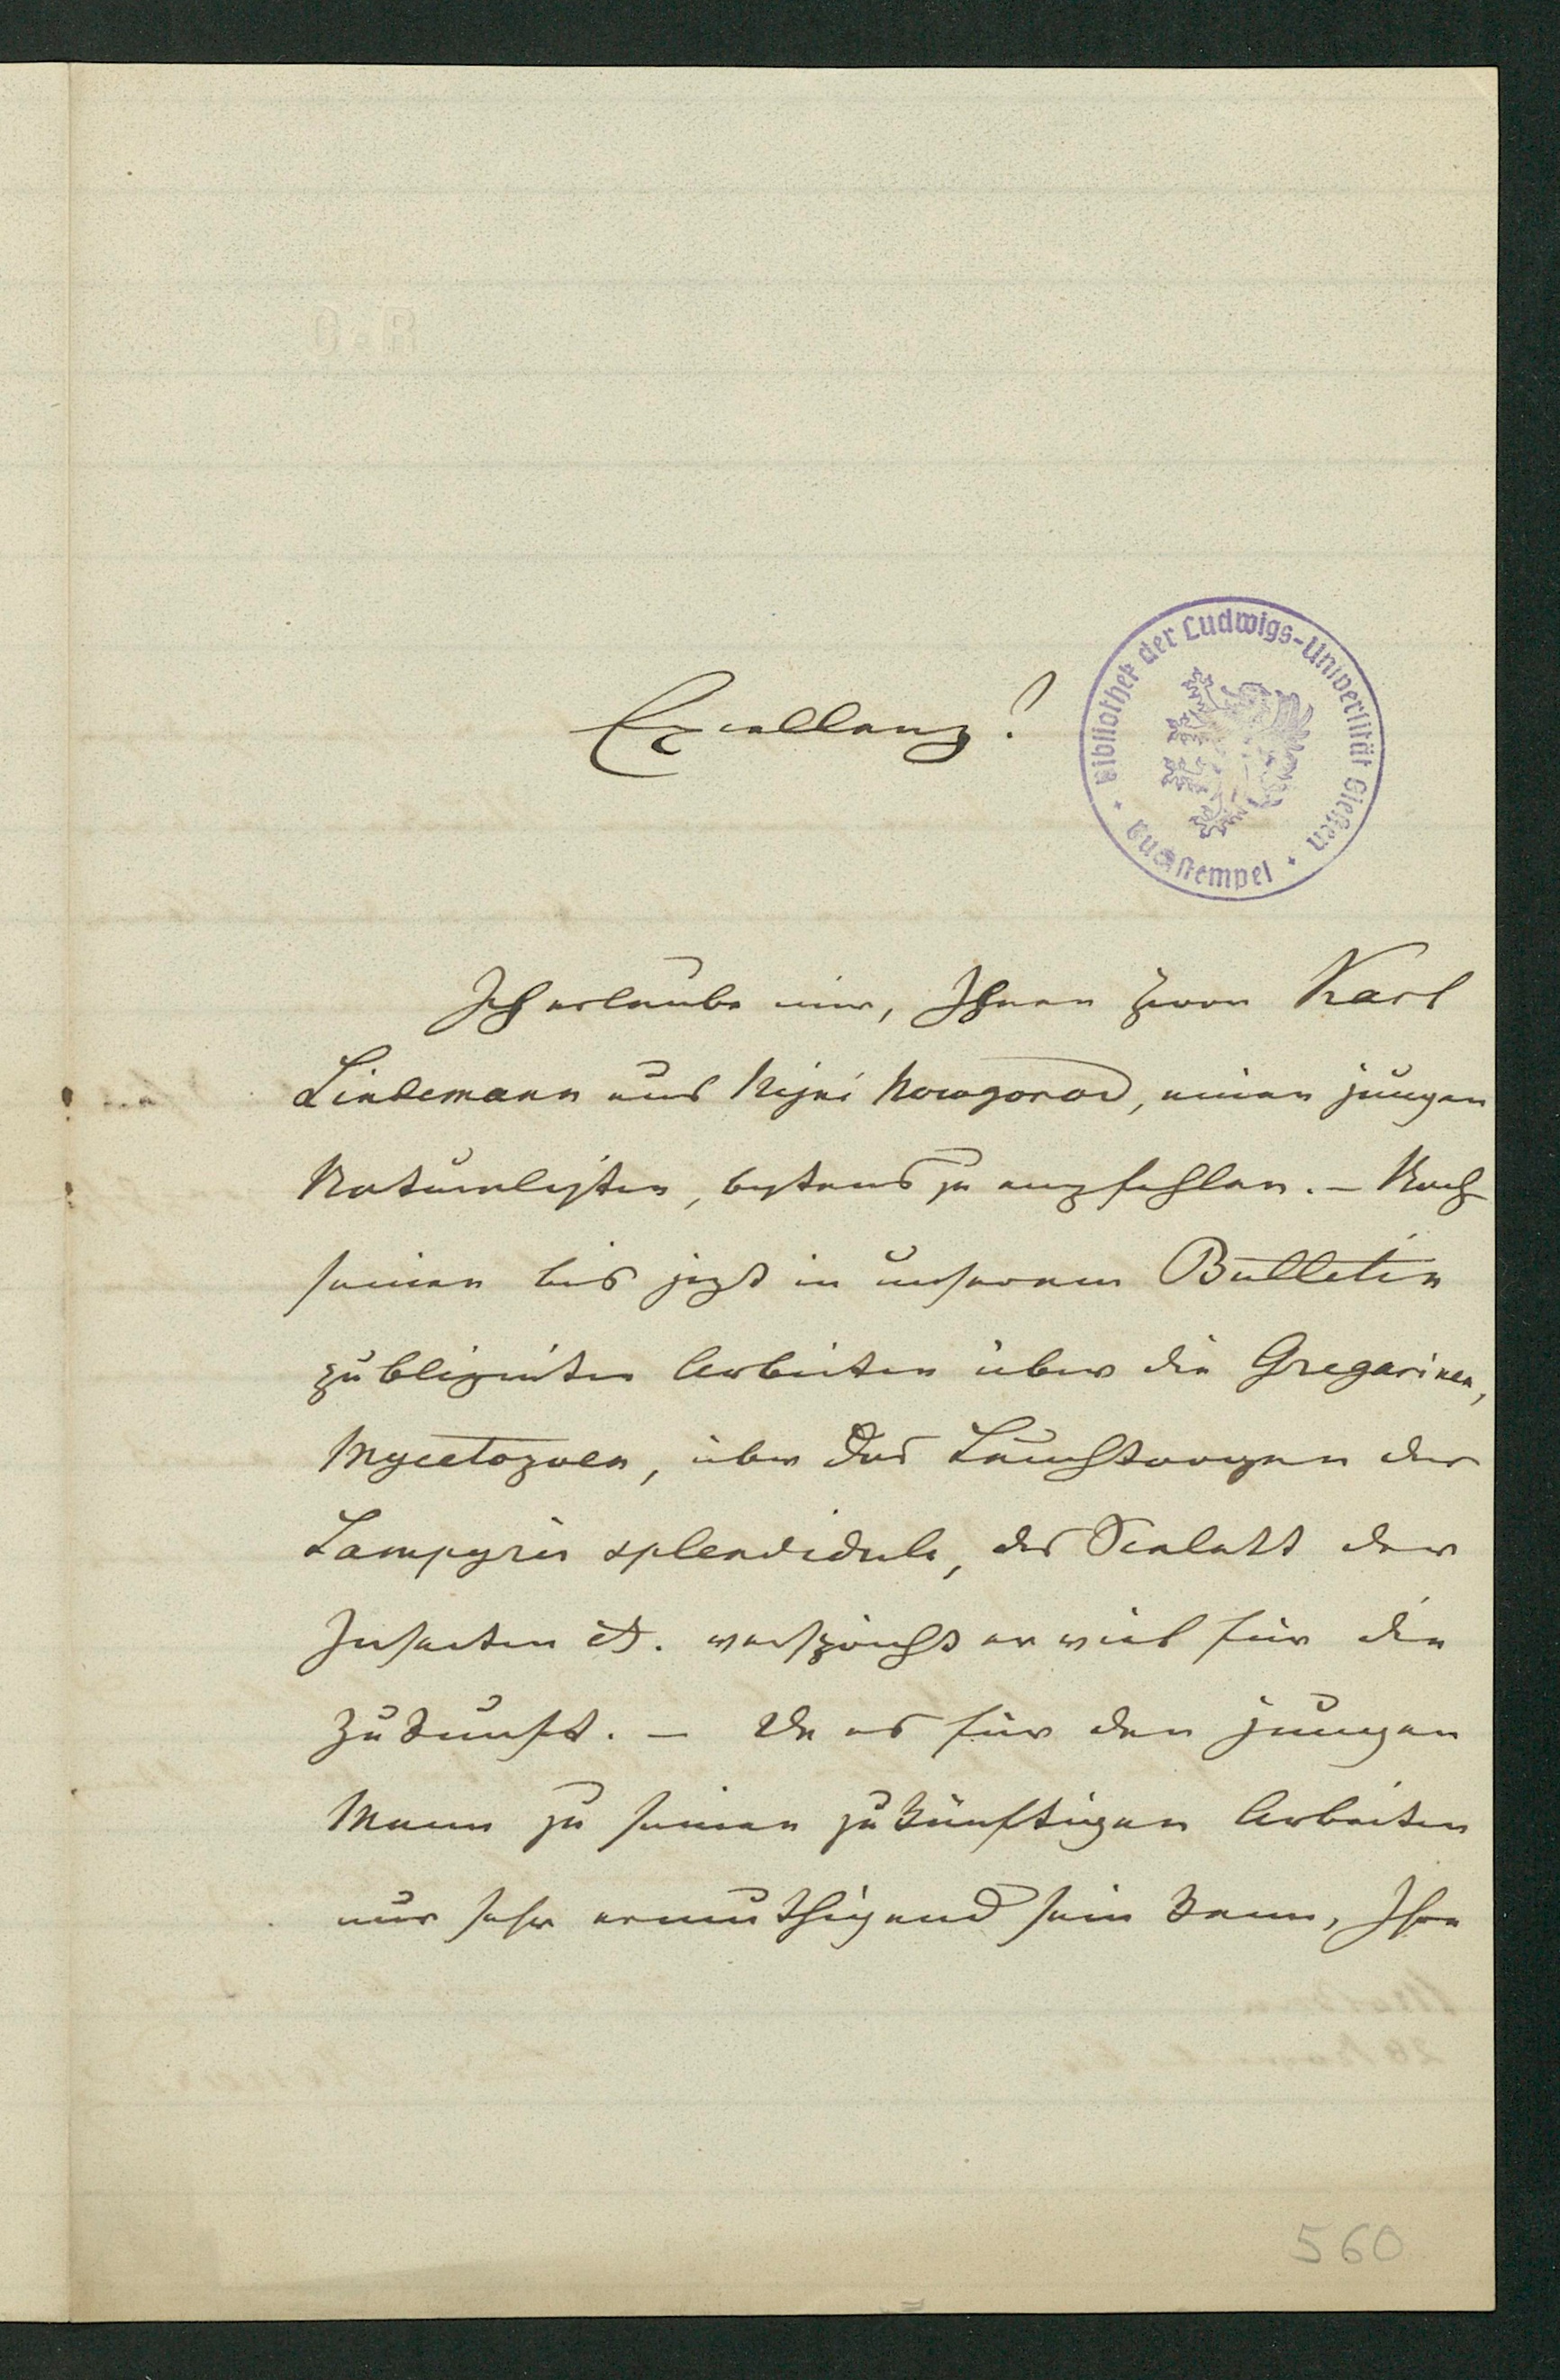 Excellenz!
Bibliothek der Ludwigs-Universität Gießen
Buchstempel
Ich erlaube mir, Ihnen Herrn Karl
Lindemann aus Nijni Nowgorod, einen jungen
Naturalisten, bestens zu empfehlen. – Nach
seinen bis jezt in unserem Bulletin
publizirten Arbeiten über die Gregarinen,
Mycetozoen, über das Leuchtorgan der
Lampyris splendidula, das Skelett der
Insecten ct. verspricht er viel für die
Zukunft. – Da es für den jungen
Mann zu seinen zukünftigen Arbeiten
nur sehr ermuthigend sein kann, Ihre
560